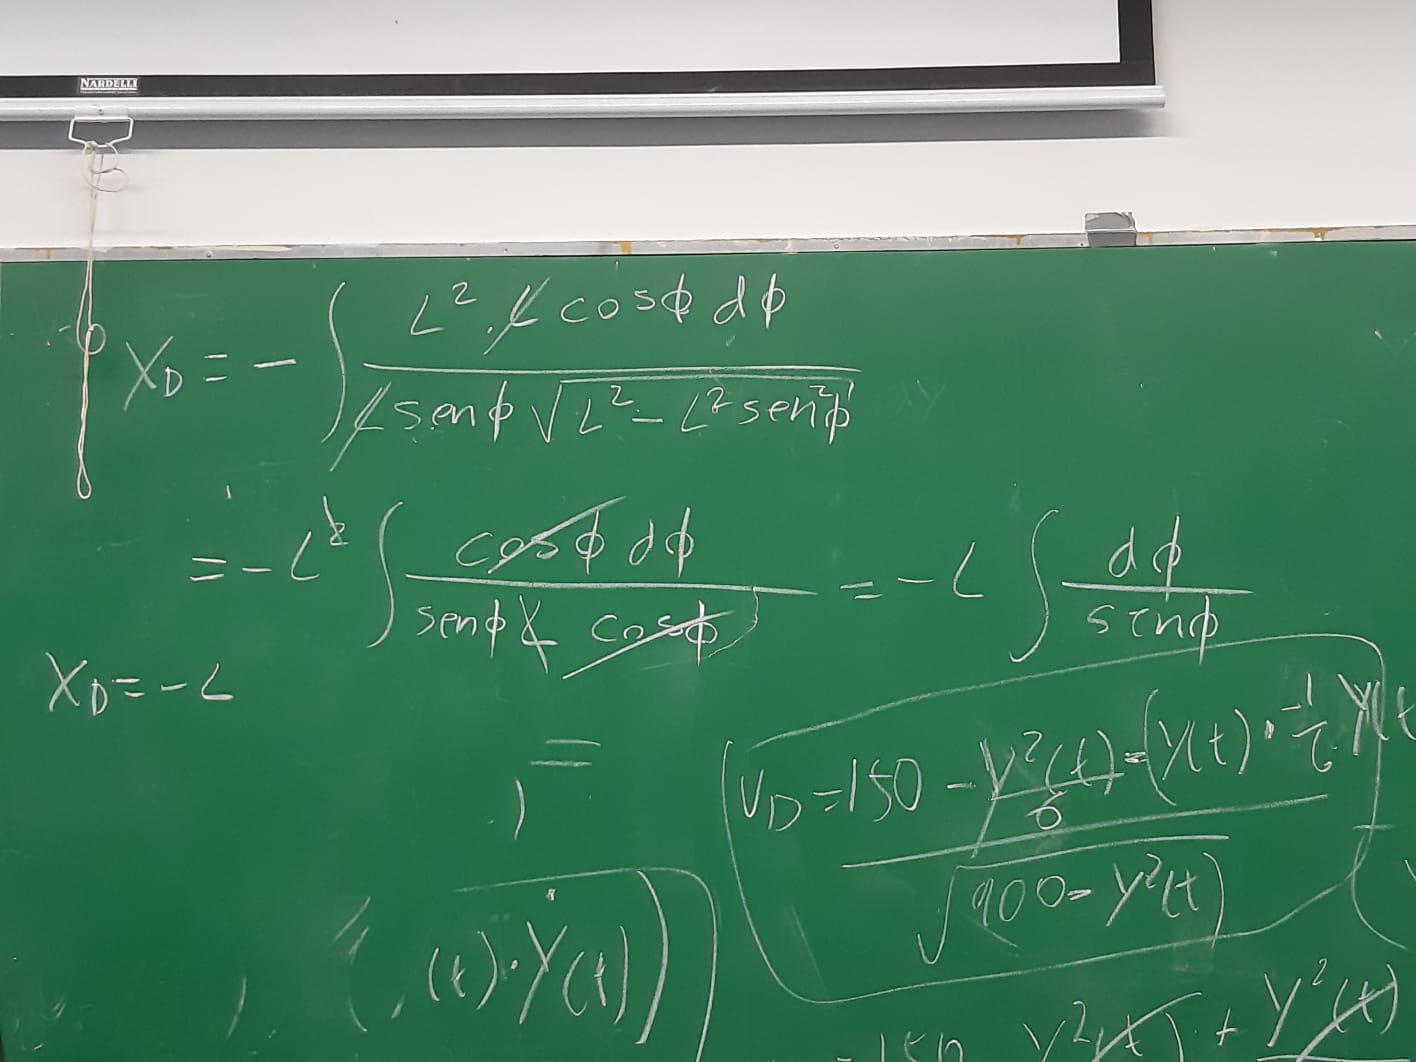 NARDELLI
X_D = - ∫ L² · L cosϕ dϕ / (L senϕ √(L² - L² sen²ϕ))
= - L² ∫ cosϕ dϕ / (senϕ L cosϕ) = - L ∫ dϕ / senϕ
X_D = - L
=
V_D = 150 - y²(t)/6 - (y(t) · -1/6 y(t
√(900 - y²(t)
(t) · Ẏ(t))
= 150 y²(t) + y²(t)